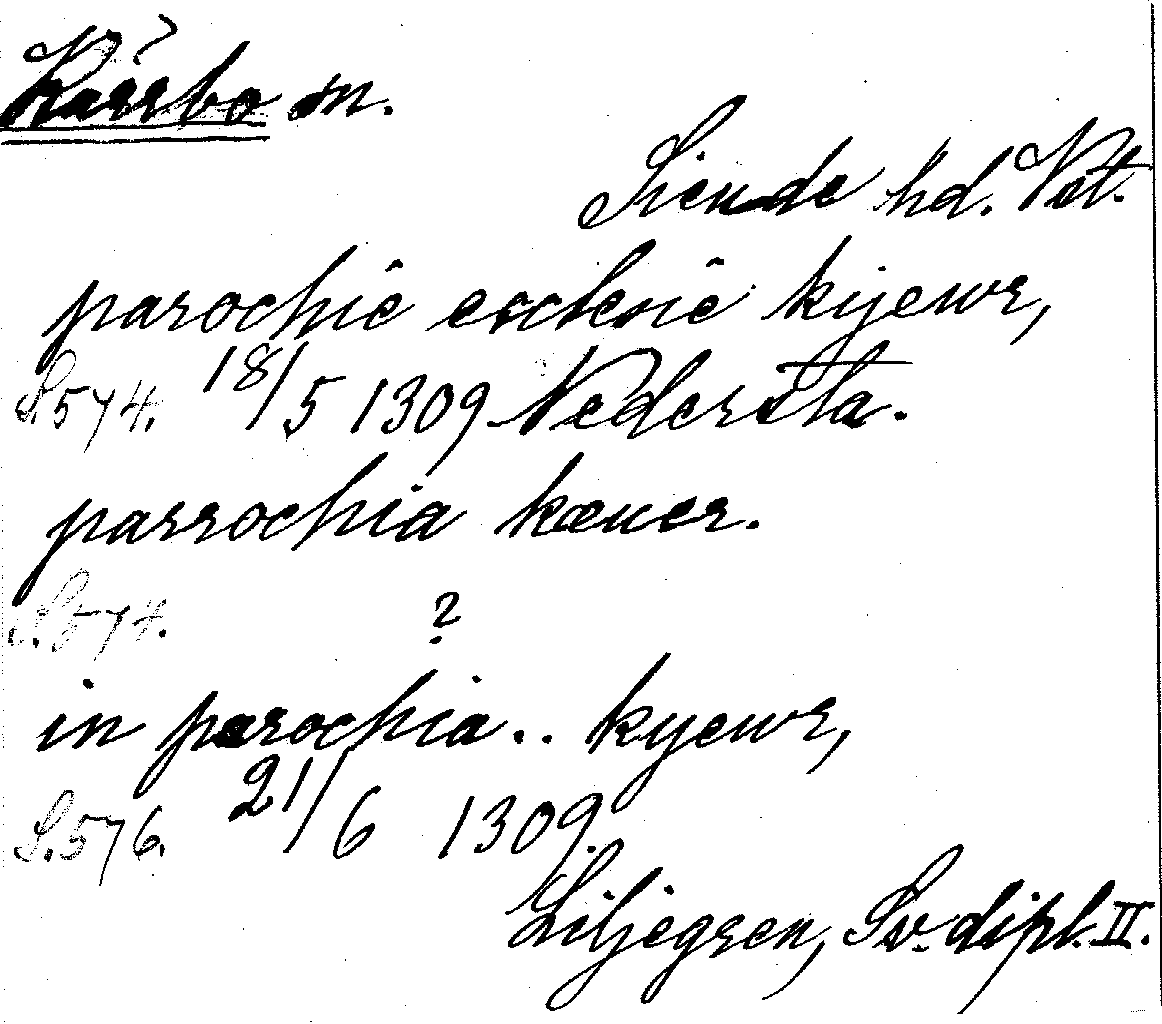 ?
Kärrbo sn.
Siende hd. Vstl.
parochiê ecclesiê kyewr,
S. 574. 18/5 1309 Nedersta.
parrochia kæuer.
S. 574.
?
in parochia.. kyewr,
S. 576. 21/6 1309.
Liljegren, Sv. dipl. II.